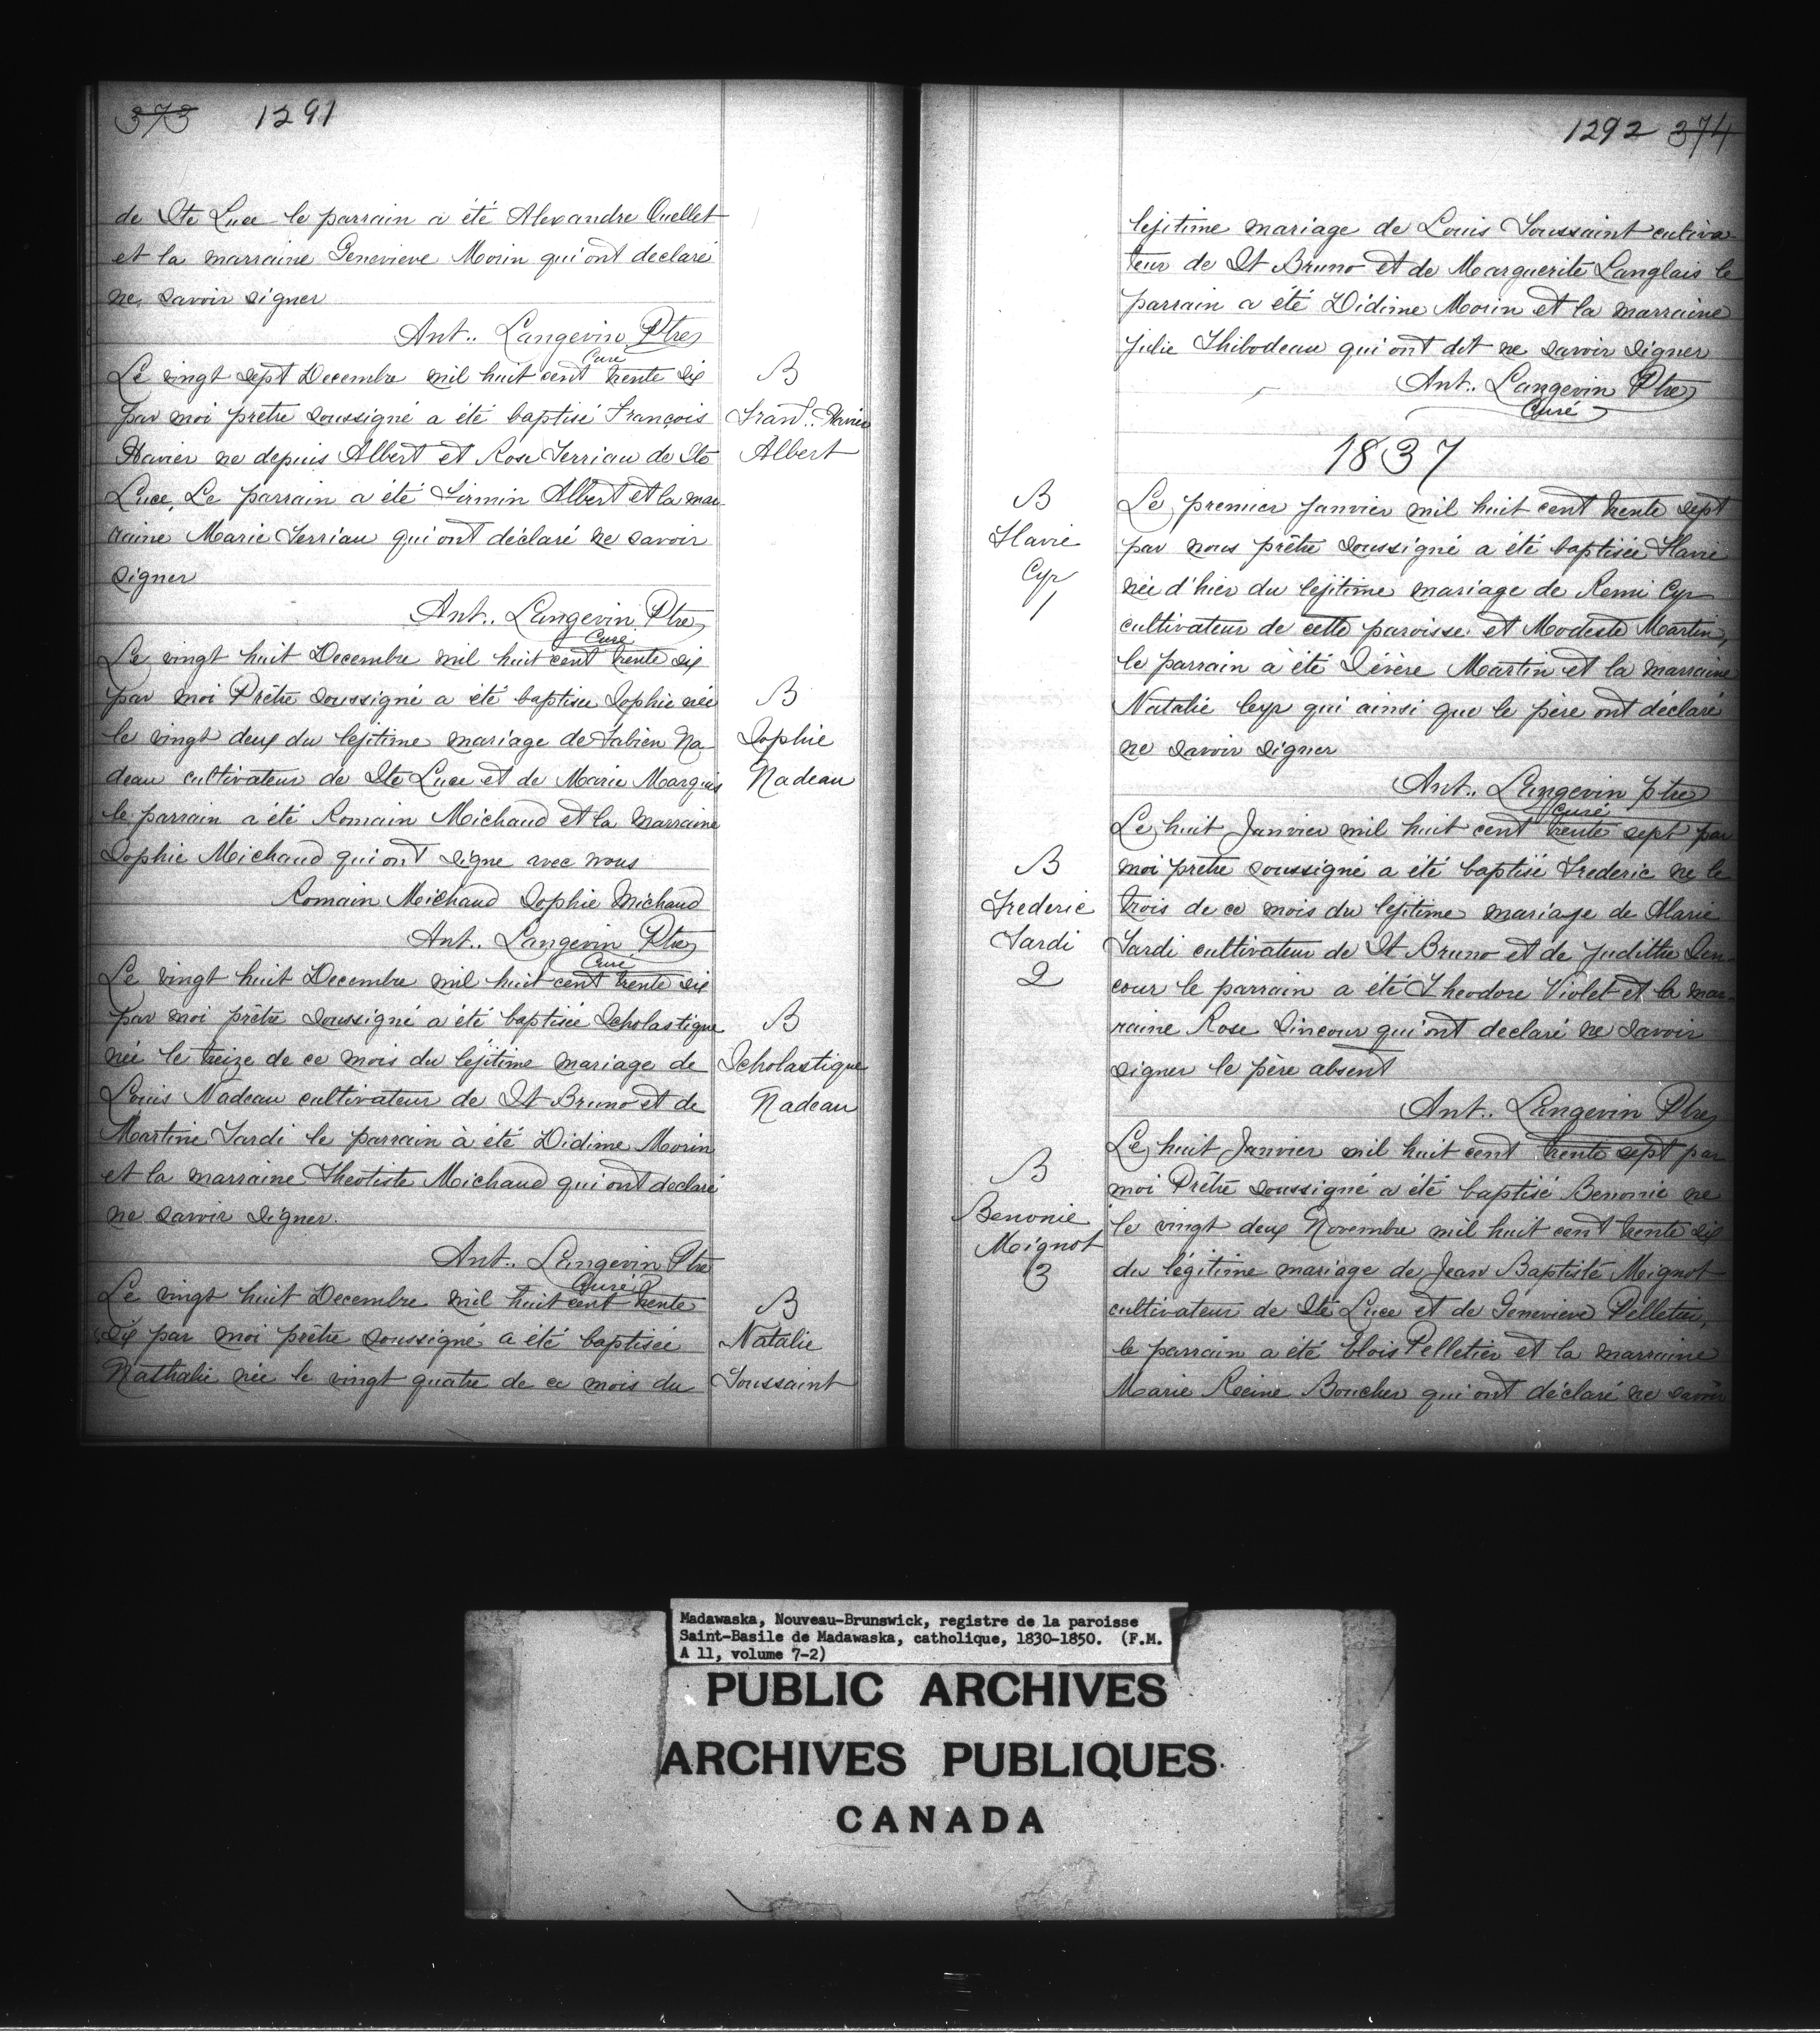 373 1291
de Ste Luce le parrain a été Alexandre Ouellet
et la marraine Genevieve Morin qui ont declaré
ne savoir signer
Ant.. Langevin Ptre
Curé
Le vingt sept Decembre mil huit cent trente six
par moi prêtre soussigné a été baptisé François
Xavier ne depuis Albert et Rose Terriau de Ste
Luce, Le parrain a été Firmin Albert et la mar
raine Marie Terriau qui ont déclaré ne savoir
signer
Ant.. Langevin Ptre
Curé
B
Fran.. Xavier
Albert
Le vingt huit Decembre mil huit cent trente six
par moi Prêtre soussigné a été baptisee Sophie née
le vingt deux du lejitime mariage de Fabien Na
deau cultivateur de Ste Luce et de Marie Marquis
le parrain a été Romain Michaud et la marraine
Sophie Michaud qui ont signe avec nous
Romain Michaud Sophie Michaud
Ant.. Langevin Ptre
Curé
B
Sophie
Nadeau
Le vingt huit Decembre mil huit cent trente six
par moi prêtre soussigné a été baptisée Scholastique
née le treize de ce mois du lejitime mariage de
Louis Nadeau cultivateur de St Bruno et de
Martine Tardi le parrain à été Didime Morin
et la marraine Theotiste Michaud qui ont declaré
ne savoir signer.
Ant.. Langevin Ptre
Curé
B
Scholastique
Nadeau
Le vingt huit Decembre mil huit cent trente
six par moi prêtre soussigné a été baptisée
Nathalie née le vingt quatre de ce mois du
B
Natalie
Toussaint
1292 374
lejitime mariage de Louis Toussaint cultiva
teur de St Bruno et de Marguerite Langlais le
parrain a été Didime Morin et la marraine
Julie Thibodeau qui ont dit ne savoir signer
Ant.. Langevin Ptre
Curé
1837
B
Flavie
Cyr
1
Le premier Janvier mil huit cent trente sept
par nous prêtre soussigné a été baptisée Flavie
née d'hier du lejitime mariage de Remi Cyr
cultivateur de cette paroisse et Modeste Martin,
le parrain a été Sévère Martin et la marraine
Natalie Cyr qui ainsi que le père ont déclaré
ne savoir signer
Ant.. Langevin ptre
Curé
B
Frederic
Tardi
2
Le huit Janvier mil huit cent trente sept par
moi prêtre soussigné a été baptisé Frederic ne le
trois de ce mois du lejitime mariage de Marie
Tardi cultivateur de St Bruno et de Judithe Sen
cour le parrain a été Theodore Violet et la mar
raine Rose Sincour qui ont declaré ne savoir
signer le père absent
Ant.. Langevin Ptre
B
Benonie
Mignot
3
Le huit Janvier mil huit cent trente sept par
moi Prêtre soussigné a été baptisé Benonie ne
le vingt deux Novembre mil huit cent trente six
du légitime mariage de Jean Baptiste Mignot
cultivateur de Ste Luce et de Genevieve Pelletier,
le parrain a été Elois Pelletier et la marraine
Marie Reine Boucher qui ont déclaré ne savoir
Madawaska, Nouveau-Brunswick, registre de la paroisse
Saint-Basile de Madawaska, catholique, 1830-1850. (F.M.
A 11, volume 7-2)
PUBLIC ARCHIVES
ARCHIVES PUBLIQUES
CANADA